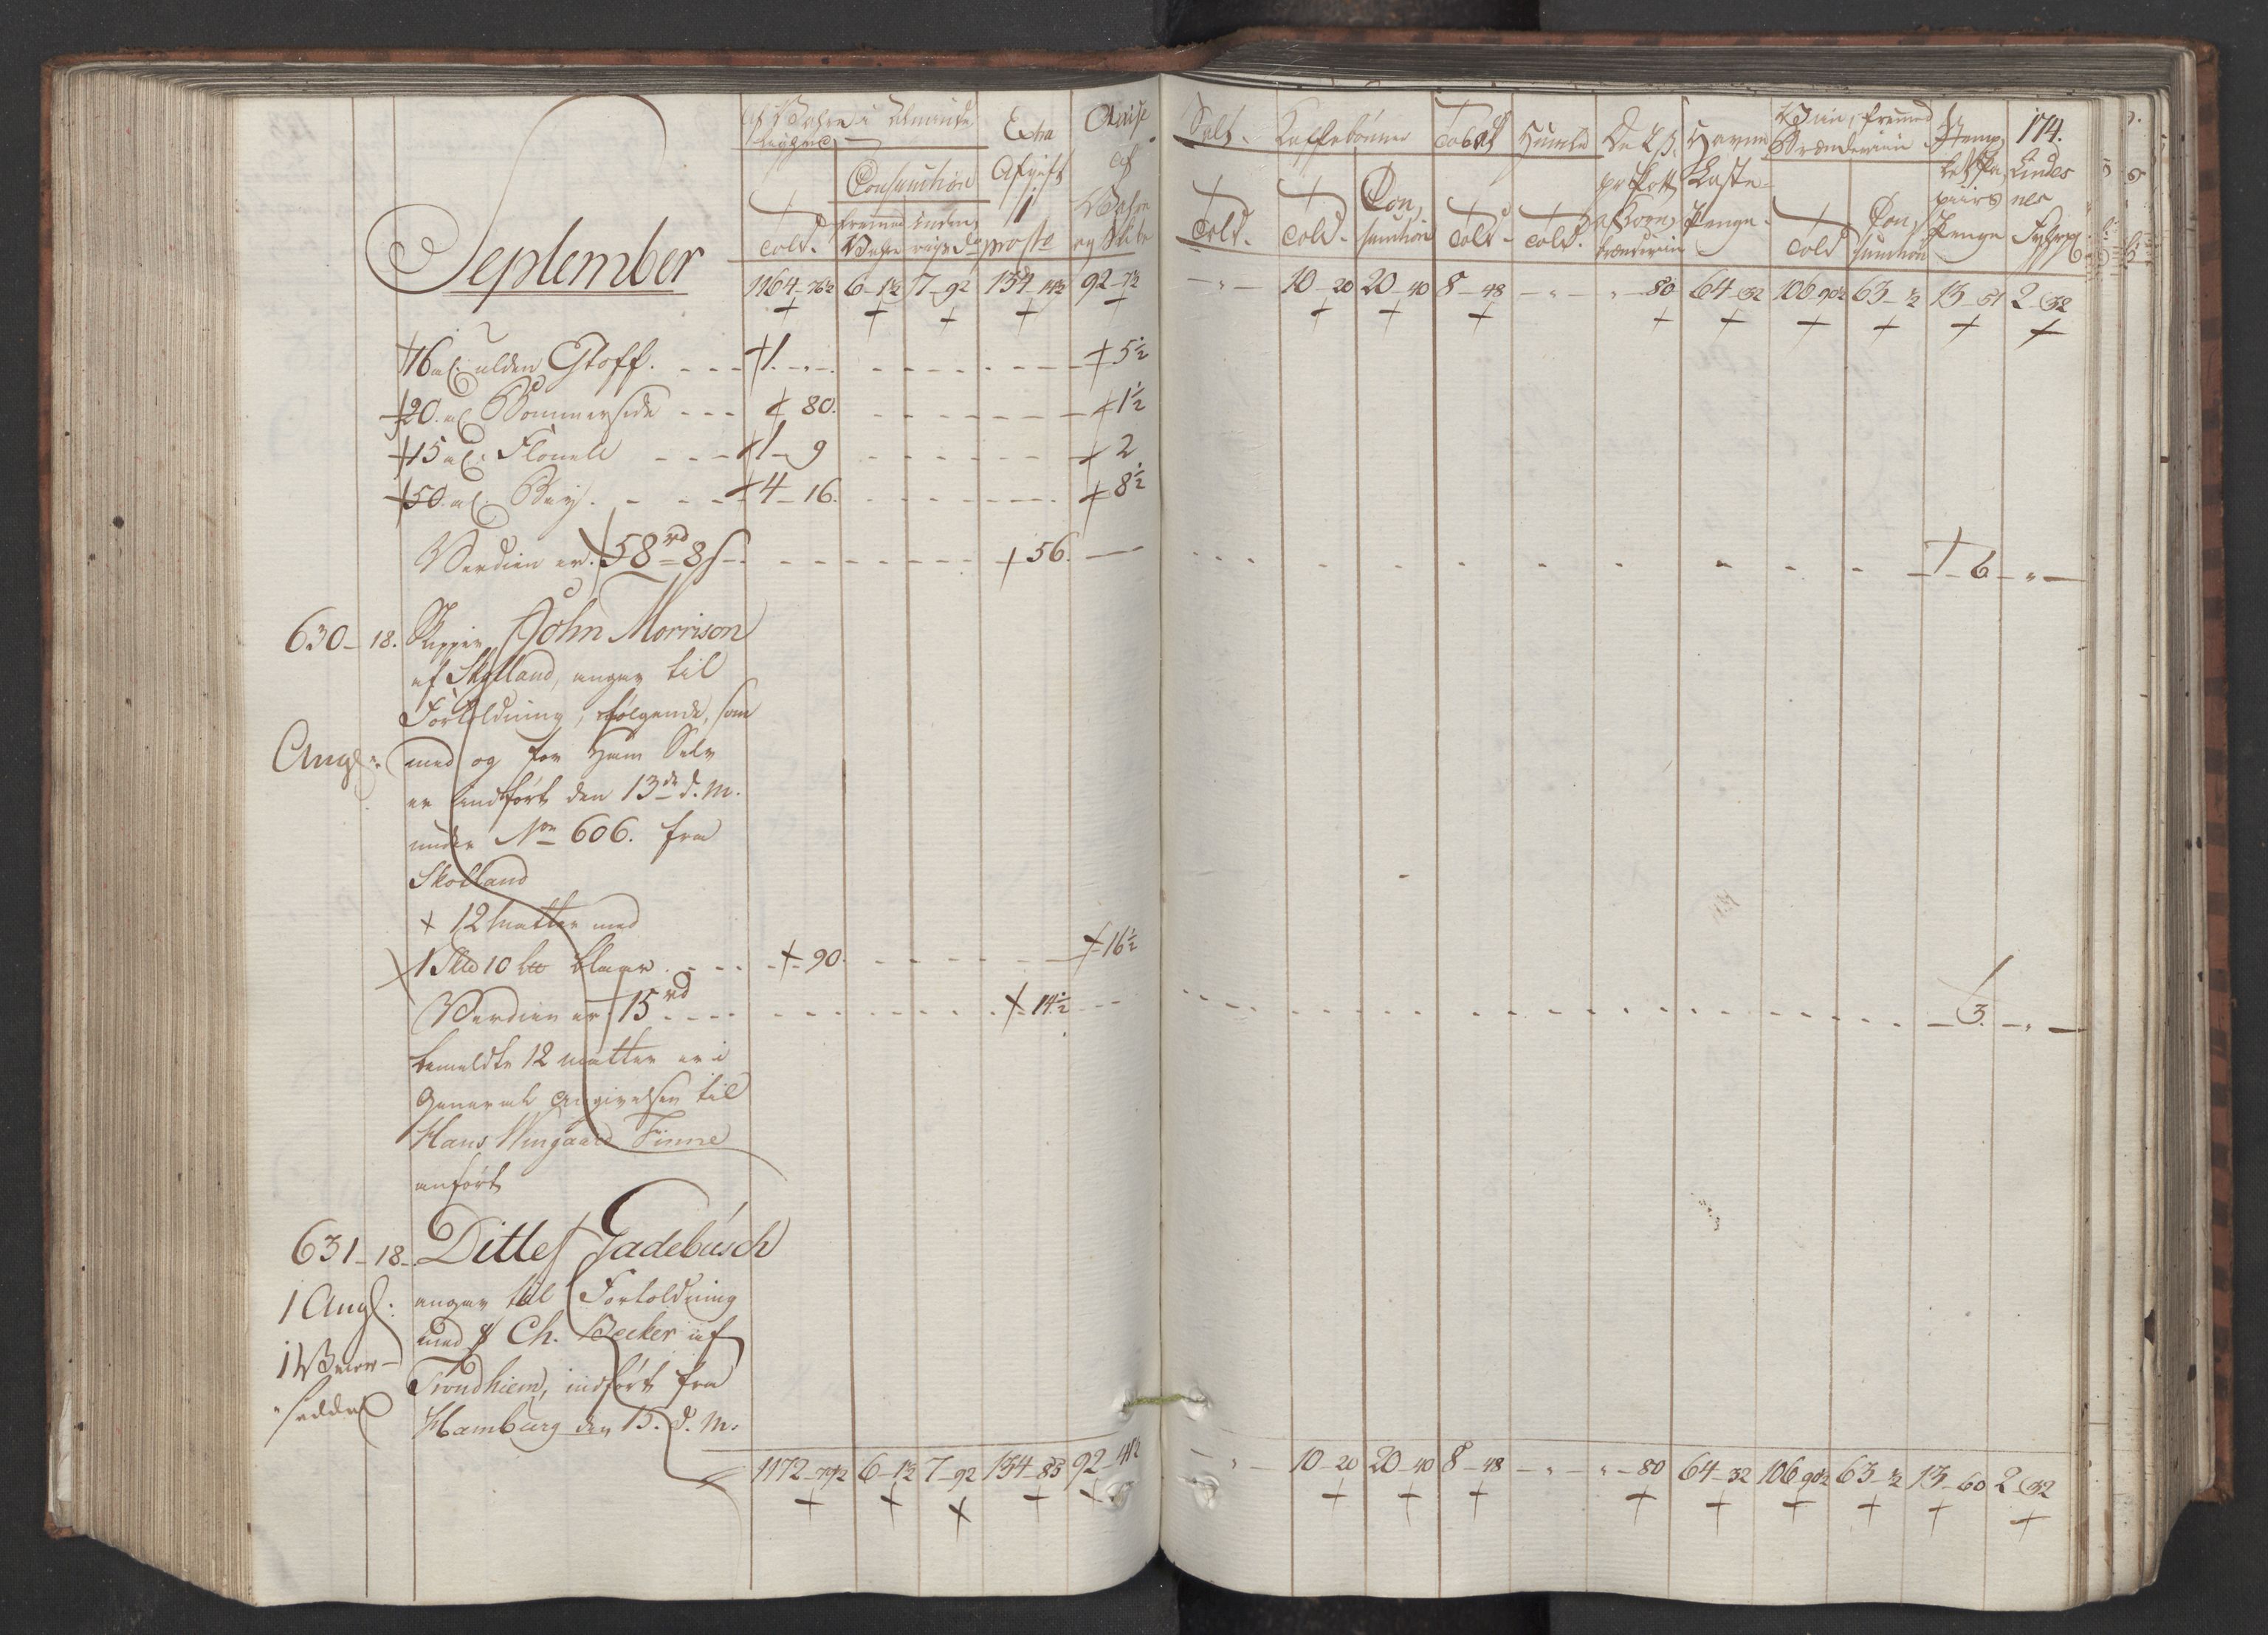 September
af Vahre i Almindelighed
Told.
Consumtion
fremmed Vahre
indenrigs do
Extra Afgift 1 procto
Accise af Vahre og Skibe
Salt. Told.
Kaffebønner
Told. Consumtion
Tobak Told.
Humle Told.
Havne Laste Penge.
Viin, fremmed Brændeviin
Told Consumtion
Stemp let Pa piirs Penge
174.
Lindesnes Fyhrpg.
1164-76½ 6-1½ 7-92 134-14½ 92-7½ -"- 10-20 20-40 8-48 -"- "-80 64-32 106-90½ 63-½ 13-51 2-32
16 al: ulden Stoff. 1.-"- 5½
20. al Bommerside 80. 1½
15 al: Flonell 1-9 2
50. al. Baij. 4-16. 8½
Verdien er. 58 rd 8 s 56. 6-"-
630-18. Skipper John Morrison
af Skotland, angav til
Fortoldning, følgende, som
Angl: med og for Ham Selv
er indført den 13de d. M.
under No 606. fra
Skotland
12 Matter med
1 Skp 10 lb Blaar 90. 16½
Verdien er 15 rd 14½ 3.-"-
bemeldte 12 Matter er i
General Angivelsen til
Hans Wingaard Finne
anført
631-18. Ditlef Gadebusch
1 Angl: angav til Fortoldning
med S Ch. Becker af
Trondhiem, indført fra
seddel Hamburg den 15. d. M.
1172-77½ 6-1½ 7-92 134-85 92-41½ -"- 10-20 20-40 8-48 -"- "-80 64-32 106-90½ 63-½ 13-60 2-32